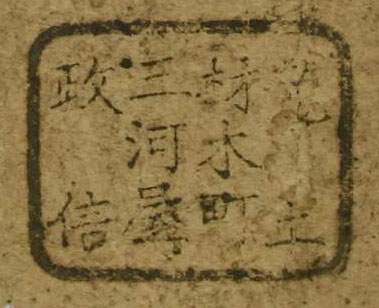 土
材木町
三河屋
政信